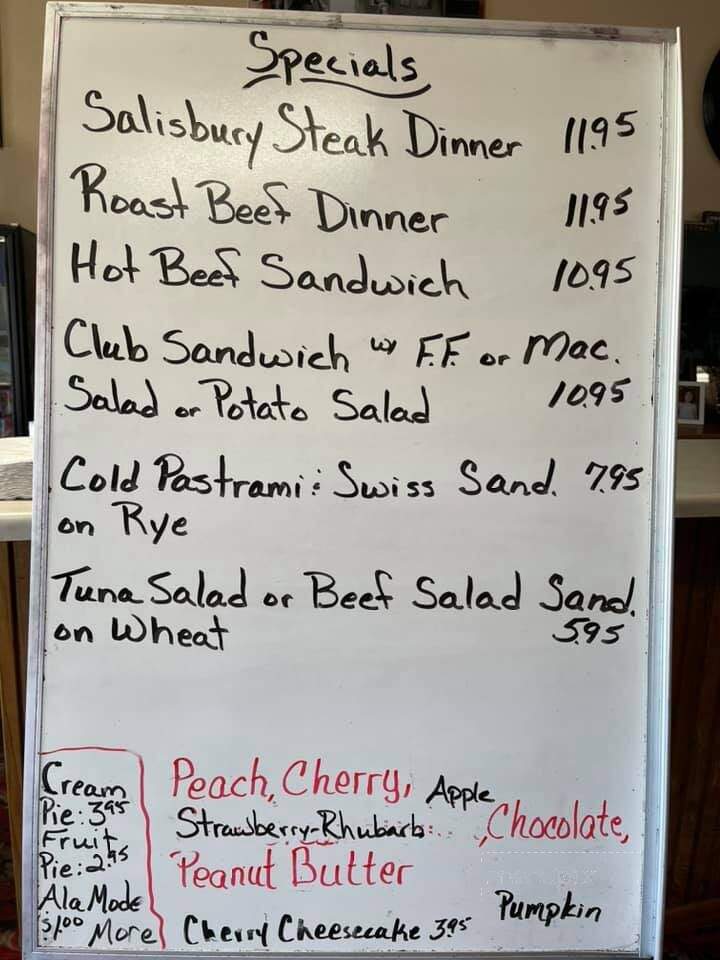 Specials
Salisbury Steak Dinner 11.95
Roast Beef Dinner 11.95
Hot Beef Sandwich 10.95
Club Sandwich w/ F.F. or Mac.
Salad or Potato Salad 10.95
Cold Pastrami & Swiss Sand. 7.95
on Rye
Tuna Salad or Beef Salad Sand.
on Wheat 5.95
Cream
Pie: 3.95
Fruit
Pie: 2.95
Ala Mode
$1.00 More
Peach, Cherry, Apple
Strawberry-Rhubarb, Chocolate,
Peanut Butter
Pumpkin
Cherry Cheesecake 3.95